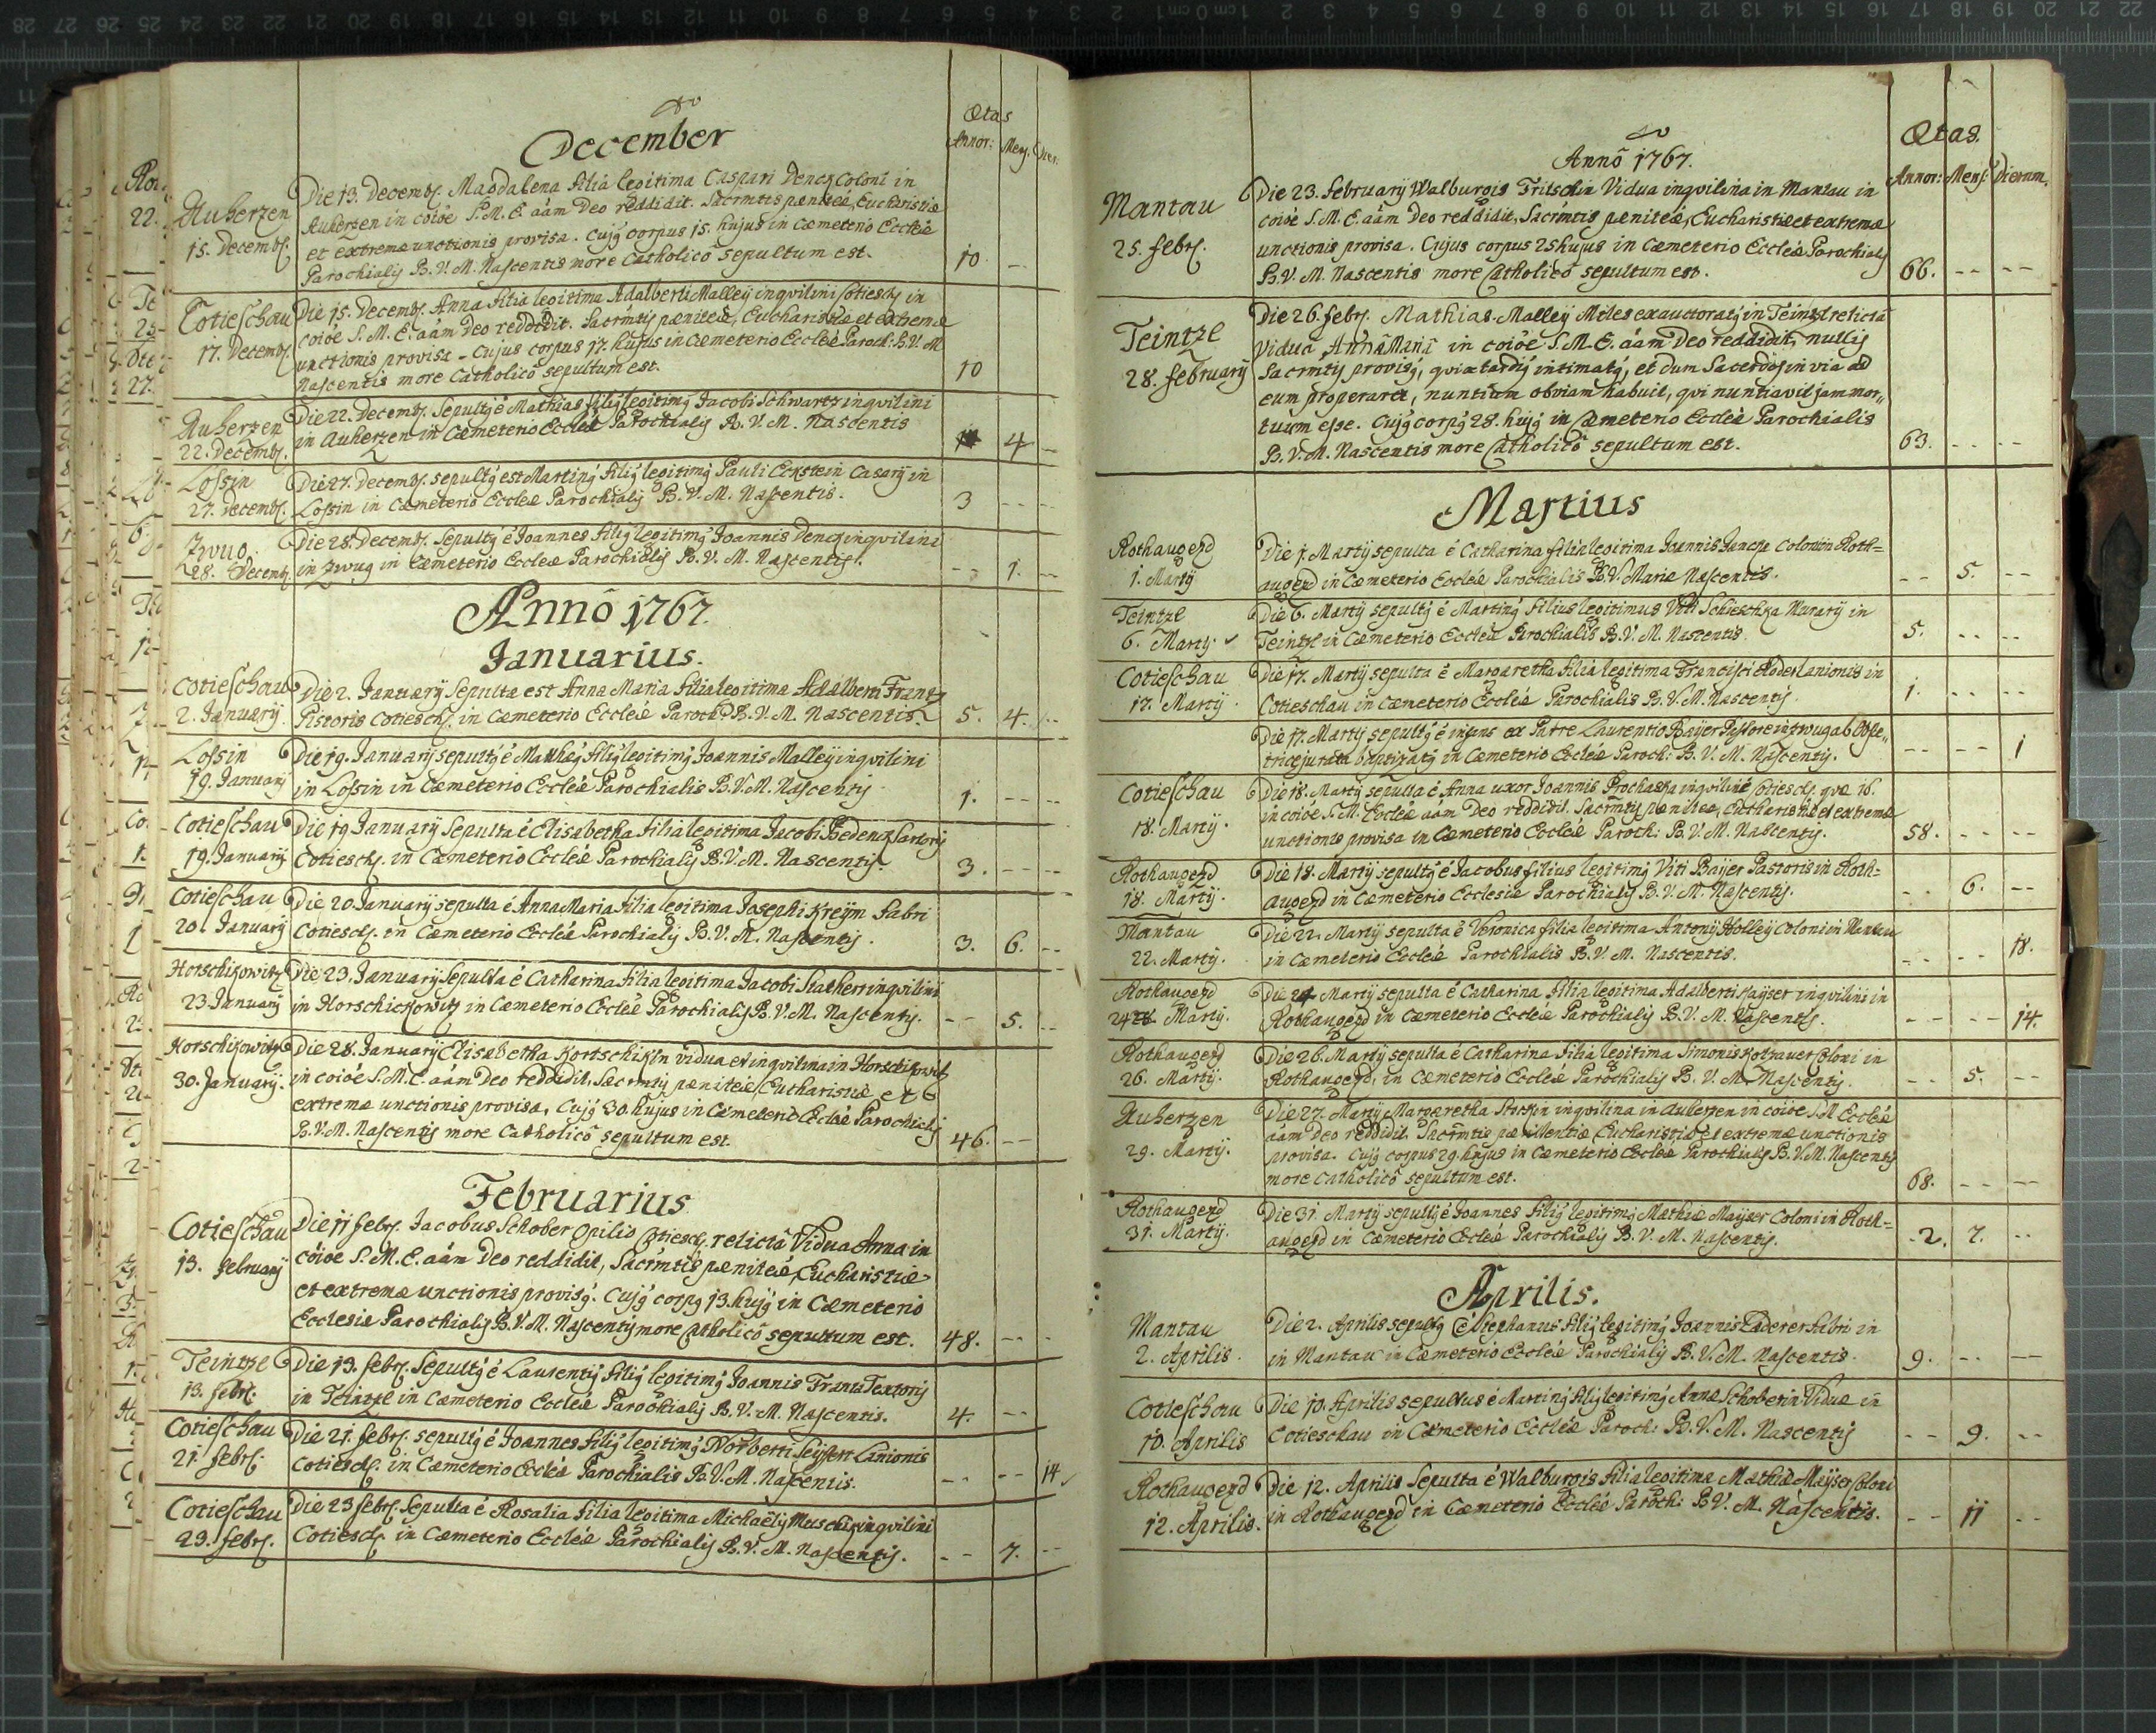 December
Ætas
Annor: Mens. Dier:
Auherzen
15. Decembr.
Die 13. Decembr. Magdalena filia legitima Caspari Dencz Coloni in
Auherzen in coiõe S. M. E. aãm Deo reddidit. Sacrmtis pæniteæ, Eucharistiæ
et extremæ unctionis provisa. Cujg corpus 15. hujus in Cæmeterio Eccleæ
Parochialis B. V. M. Nascentis more Catholicô sepultum est.
10 --
Cotieschau
17. Decembr.
Die 15. Decembr. Anna filia legitima Adalberti Malleÿ inqvilini Cotiesch. in
coiõe S. M. E. aãm Deo reddidit. Sacrmtis pæniteæ, Eucharistiæ et extremæ
unctionis provisa - Cujus corpus 17. hujus in Cæmeterio Eccleæ Paroch: B. V. M
Nascentis more Catholicô sepultum est.
10
Auherzen
22. Decembr.
Die 22. Decembr. Sepultg ẽ Mathias filig legitimg Jacobi Schwartz inqvilini
in Auherzen in Cæmeterio Eccleæ Parochialis B. V. M. Nascentis
4 --
Lossin
27. Decembr.
Die 27. Decembr. sepultg est Marting filig legitimg Pauli Eckstein Casarÿ in
Lossin in Cæmeterio Eccleæ Parochialis B. V. M. Nascentis.
3 -- --
Zwug
28. Decembr.
Die 28. Decembr. Sepultg ẽ Joannes filig legitimg Joannis Dencz inqvilini
in Zwug in Cæmeterio Eccleæ Parochialis B. V. M. Nascentis.
-- 1. --
Annô 1767.
Januarius.
Cotieschau
2. Januarÿ
Die 2. Januarÿ Sepulta est Anna Maria filia legitima Adalberti Frantz
Pistoris Cotiesch. in Cæmeterio Eccleæ Paroch: B. V. M. Nascentis.
5. 4. --
Lossin
19. Januarÿ
Die 19. Januarÿ sepultg ẽ Mathæg filig legitimg Joannis Malleÿ inqvilini
in Lossin in Cæmeterio Eccleæ Parochialis B. V. M. Nascentis
1. -- --
Cotieschau
19. Januarÿ
Die 19 Januarÿ Sepulta ẽ Elisabetha filia legitima Jacobi Bedencz Sartoris
Cotiesch. in Cæmeterio Eccleæ Parochialis B. V. M. Nascentis.
3. -- --
Cotieschau
20. Januarÿ
Die 20 Januarÿ sepulta ẽ Anna Maria filia legitima Josephi Kreÿm Fabri
Cotiesch. in Cæmeterio Eccleæ Parochialis B. V. M. Nascentis.
3. 6. --
Horschikowitz
23 Januarÿ
Die 23. Januarÿ Sepulta ẽ Catharina filia legitima Jacobi Stacherr inqvilini
in Horschickowitz in Cæmeterio Eccleæ Parochialis B. V. M. Nascentis.
-- 5. --
Horschikowitz
30. Januarÿ
Die 28. Januarÿ Elisabetha Kortschikin vidua et inqvilina in Horschikovitz
in coiõe S. M. E. aãm Deo reddidit, Sacrmtis pæniteæ, Eucharistiæ et
extremæ unctionis provisa, Cujg 30. hujus in Cæmeterio Eccleæ Parochialis
B. V. M. Nascentis more Catholicô sepultum est.
46. --
Februarius
Cotieschau
13. februarÿ
Die 11 febr. Jacobus Schober Opilio Cotiesch. relictâ Viduâ Anna in
coiõe S. M. E. aãm Deo reddidit, Sacrmtis pæniteæ, Eucharistiæ
et extremæ unctionis provisg. Cujg corpg 13. hujg in Cæmeterio
Ecclesiæ Parochialis B. V. M. Nascentis more Catholicô sepultum est.
48. -- -
Teintzl
13. febr.
Die 13. febr. Sepultg ẽ Laurentig filig legitimg Joannis Frantz Textoris
in Teintzl in Cæmeterio Eccleæ Parochialis B. V. M. Nascentis.
4. --
Cotieschau
21. febr.
Die 21. febr. sepultg ẽ Joannes filig legitimg Norberti Seÿfert Lanionis
Cotiesch. in Cæmeterio Eccleæ Parochialis B. V. M. Nascentis.
-- -- 14
Cotieschau
23. febr.
Die 23 febr. Sepulta ẽ Rosalia filia legitima Michaëlis Muschik inqvilini
Cotiesch. in Cæmeterio Eccleæ Parochialis B. V. M. Nascentis.
-- 7. --
Annô 1767.
Ætas.
Annor: Mens: Dierum.
Mantau
25. febr.
Die 23. februarÿ Walburgis Fritschin Vidua inqvilina in Mantau in
coiõe S. M. E. aãm Deo reddidit, Sacrmtis pæniteæ, Eucharistiæ et extremæ
unctionis provisa. Cujus corpus 25 hujus in Cæmeterio Eccleæ Parochialis
B. V. M. Nascentis more Catholicô sepultum est.
66. -- --
Teintzl
28. februarÿ
Die 26. febr. Mathias Malleÿ Miles exauctoratg in Teintzl relictâ
Viduâ Annâ Mariâ in coiõe S. M. E. aãm Deo reddidit, nullis
Sacrmtis provisg, qvia tardig intimatg, et dum Sacerdos in via ad
eum properaret, nuntium obviam habuit, qvi nuntiavit jam mor„
tuum esse. Cujg corpg 28. hujg in Cæmeterio Eccleæ Parochialis
B. V. M. Nascentis more Catholicô sepultum est.
63. -- --
Martius
Rothaugezd
1. Martÿ
Die 1. Martÿ sepulta ẽ Catharina filia legitima Joannis Coloni in Roth=
augezd in Cæmeterio Eccleæ Parochialis B. V. Mariæ Nascentis.
-- 5. --
Teintzl
6. Martÿ
Die 6. Martÿ sepultg ẽ Marting filius legitimus Viti Schieschka Murarÿ in
Teintzl in Cæmeterio Eccleæ Parochialis B. V. M. Nascentis.
5. -- --
Cotieschau
17. Martÿ
Die 17. Martÿ sepulta ẽ Margaretha filia legitima Francisci Lanionis in
Cotieschau in Cæmeterio Eccleæ Parochialis B. V. M. Nascentis
1. -- --
Die 17. Martÿ sepultg ẽ infans ex Patre Laurentio Baÿer Pastore in Zwug ab Obste„
trice jurata baptizatg in Cæmeterio Eccleæ Paroch: B. V. M. Nascentis.
-- -- 1
Cotieschau
18. Martÿ
Die 18. Martÿ sepulta ẽ Anna uxor Joannis Prochaska inqvilini Cotiesch. qvæ 16.
in coiõe S. M. Eccleæ aãm Deo reddidit. Sacrmtis pæniteæ, Eucharistiæ et extremæ
unctionis provisa in Cæmeterio Eccleæ Paroch: B. V. M. Nascentis.
58. -- --
Rothaugezd
18. Martÿ
Die 18. Martÿ sepultg ẽ Jacobus filius legitimg Viti Baÿer Pastoris in Roth=
augezd in Cæmeterio Ecclesiæ Parochialis B. V. M. Nascentis.
-- 6. --
Mantau
22. Martÿ
Die 22. Martÿ sepulta ẽ Veronica filia legitima Antonÿ Holleÿ Coloni in Mantau
in Cæmeterio Eccleæ Parochialis B. V. M. Nascentis.
-- -- 18.
Rothaugezd
24 Martÿ.
Die 24 Martÿ sepulta ẽ Catharina filia legitima Adalberti Kaÿser inqvilini in
Rothaugezd in Cæmeterio Eccleæ Parochialis B. V. M. Nascentis.
-- -- 14.
Rothaugezd
26. Martÿ.
Die 26. Martÿ sepulta ẽ Catharina filia legitima Simonis Coloni in
Rothaugezd in Cæmeterio Eccleæ Parochialis B. V. M. Nascentis.
-- 5. --
Auherzen
29. Martÿ.
Die 27. Martÿ Margaretha inqvilina in Auherzen in coiõe S. M Eccleæ
aãm Deo reddidit. Sacrmtis pænitentiæ Eucharistiæ et extremæ unctionis
provisa. Cujg corpus 29. hujus in Cæmeterio Eccleæ Parochialis B. V. M. Nascentis
more Catholicô sepultum est.
68. -- --
Rothaugezd
31. Martÿ.
Die 31. Martÿ sepultg ẽ Joannes filig legitimg Mathiæ Maÿser Coloni in Roth=
augezd in Cæmeterio Eccleæ Parochialis B. V. M. Nascentis.
2. 7. --
Aprilis.
Mantau
2. Aprilis
Die 2. Aprilis sepultg ẽ Stephanus filig legitimg Joannis Fabri in
in Mantau in Cæmeterio Eccleæ Parochialis B. V. M. Nascentis.
9. -- --
Cotieschau
10. Aprilis
Die 10. Aprilis sepultus ẽ Marting filig legitimg Annæ Schoberin Viduæ in
Cotieschau in Cæmeterio Eccleæ Paroch: B. V. M. Nascentis
-- 9. --
Rothaugezd
12. Aprilis.
Die 12. Aprilis Sepulta ẽ Walburgis filia legitima Mathiæ Maÿser Coloni
in Rothaugezd in Cæmeterio Eccleæ Paroch: B. V. M. Nascentis.
-- 11 --